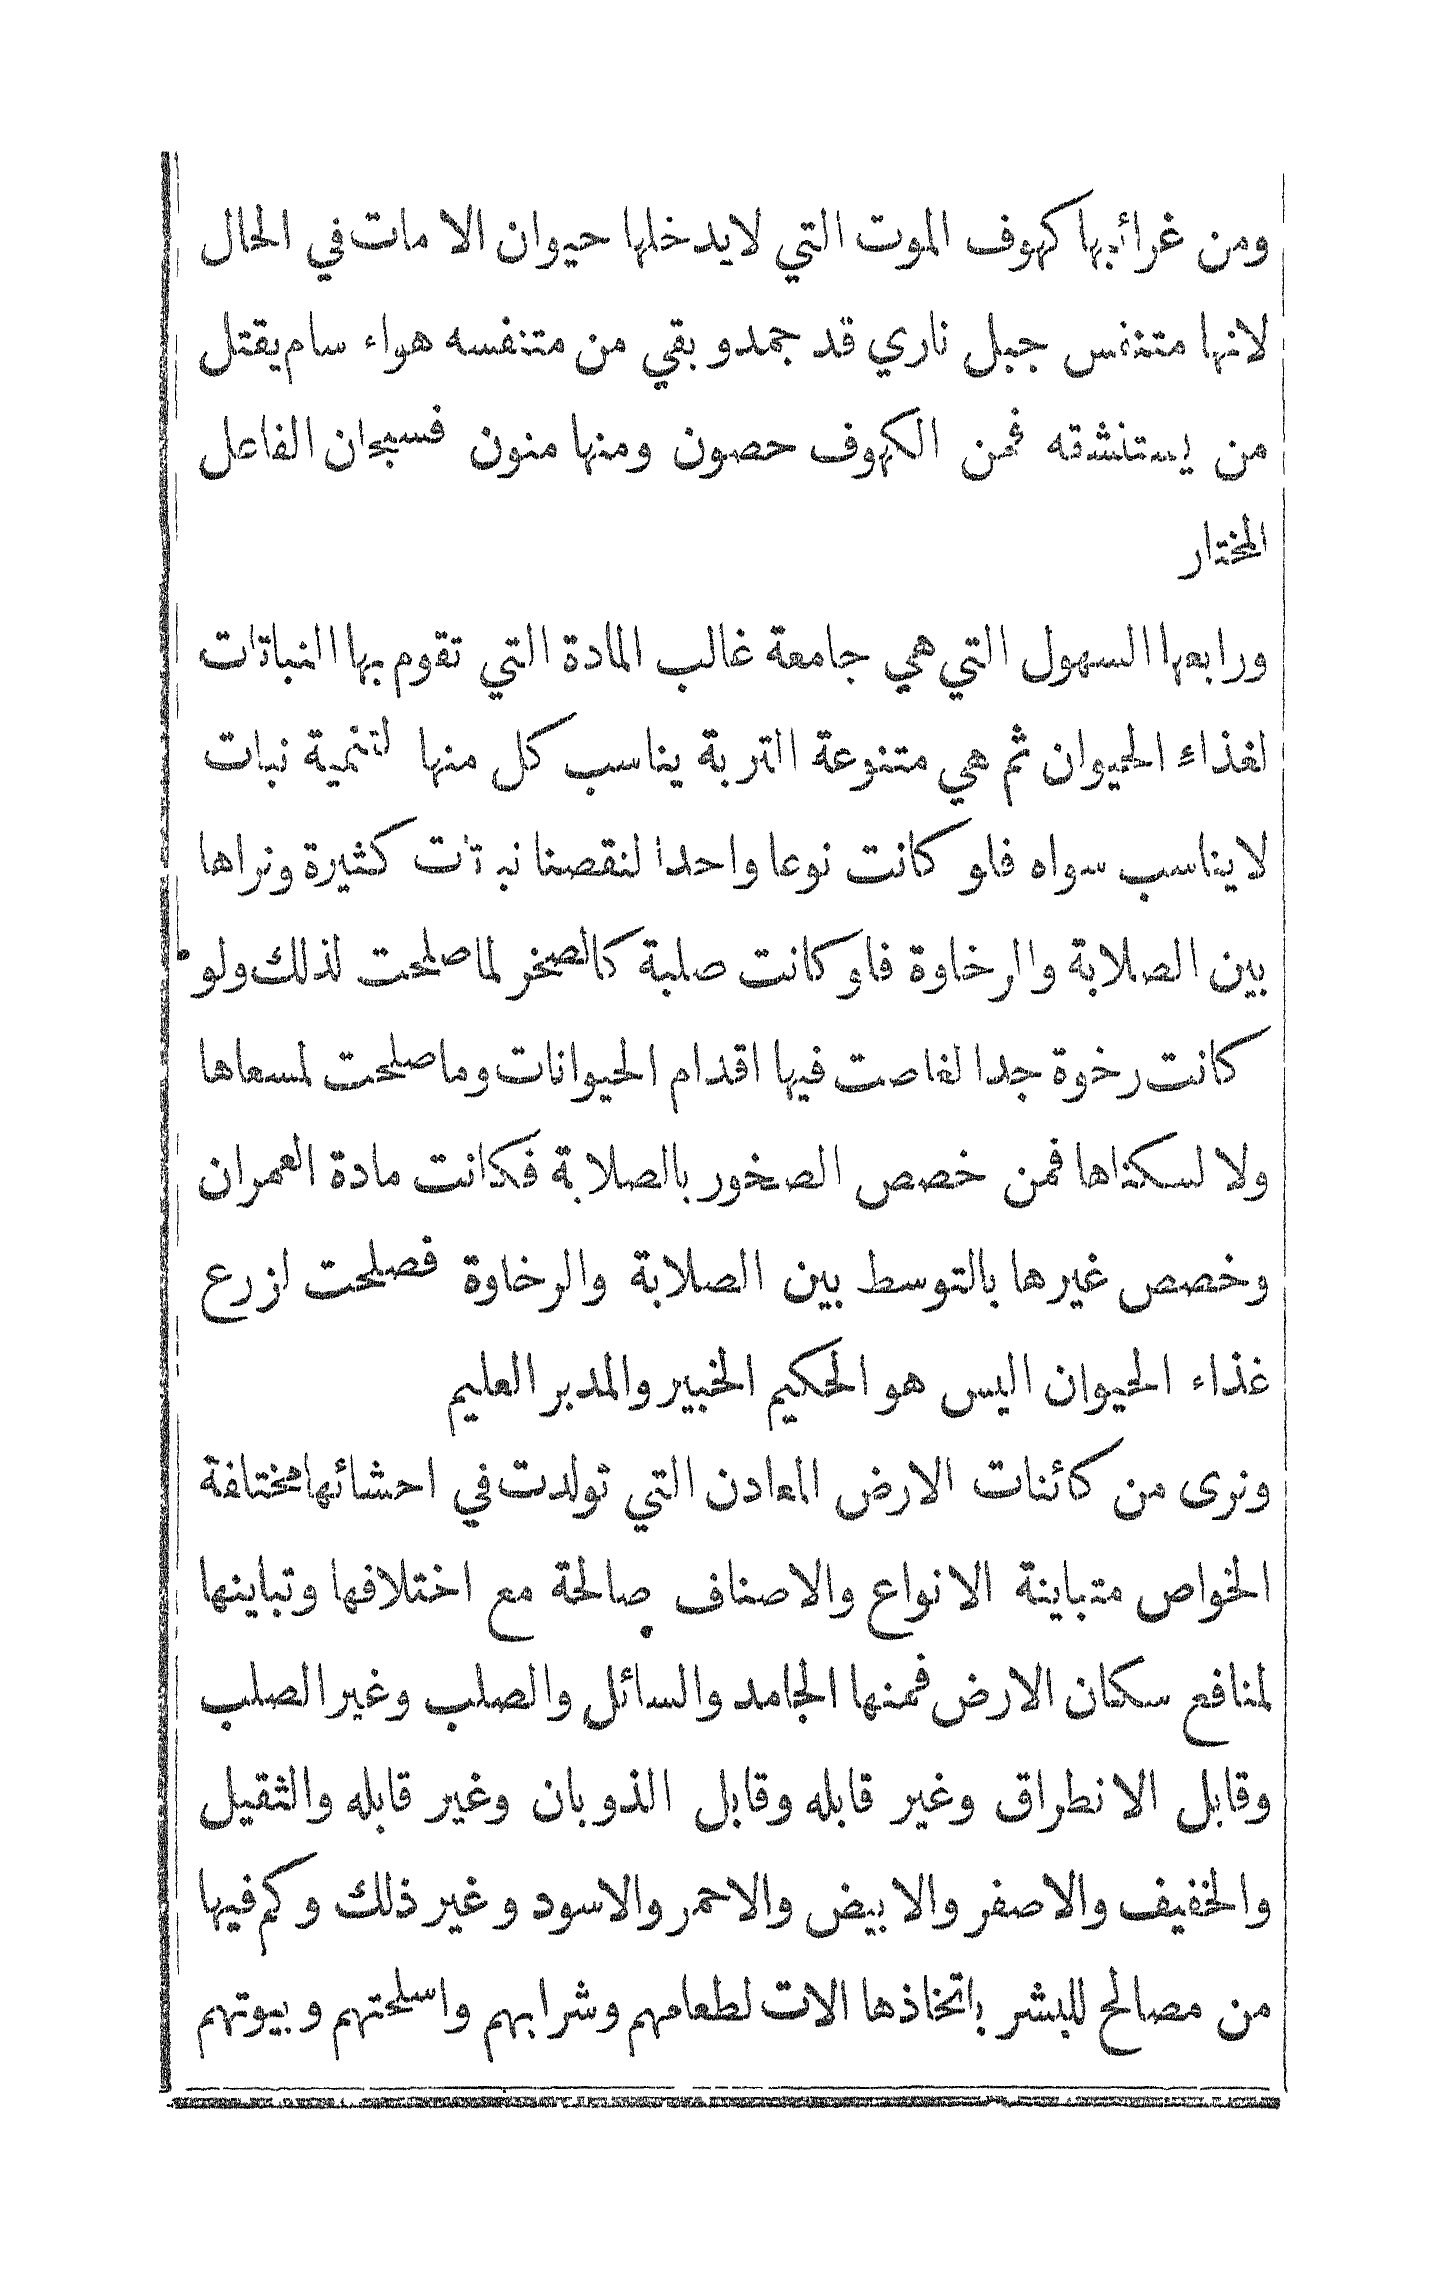 ومن غرائبها كهوف الموت التي لايدخلها حيوان الا مات في الحال
لانها متنفس جبل ناري قد جمد وبقي من متنفسه هواء سام يقتل
من يستنشقه فمن الكهوف حصون ومنها منون فسبحان الفاعل
المختار
ورابعها السهول التي هي جامعة غالب المادة التي تقوم بها النباتات
لغذاء الحيوان ثم هي متنوعة التربة يناسب كل منها لتنمية نبات
لايناسب سواه فلو كانت نوعا واحدا لنقصنا نباتات كثيرة ونراها
بين الصلابة والرخاوة فلو كانت صلبة كالصخر لما صلحت لذلك ولو
كانت رخوة جدا لغاصت فيها اقدام الحيوانات وما صلحت لمسعاها
ولا لسكناها فمن خصص الصخور بالصلابة فكانت مادة العمران
وخصص غيرها بالتوسط بين الصلابة والرخاوة فصلحت لزرع
غذاء الحيوان اليس هو الحكيم الخبير والمدبر العليم
ونرى من كائنات الارض المعادن التي تولدت في احشائها مختلفة
الخواص متباينة الانواع والاصناف صالحة مع اختلافها وتباينها
لمنافع سكان الارض فمنها الجامد والسائل والصلب وغير الصلب
وقابل الانطراق وغير قابله وقابل الذوبان وغير قابله والثقيل
والخفيف والاصفر والابيض والاحمر والاسود وغير ذلك وكم فيها
من مصالح للبشر باتخاذها الات لطعامهم وشرابهم واسلحتهم وبيوتهم